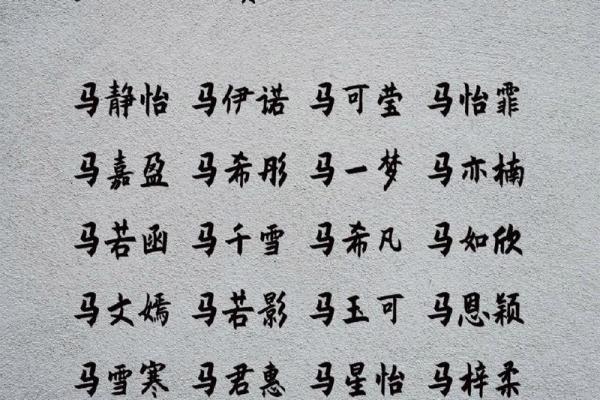 马静怡 马伊诺 马可莹 马怡霏
马嘉盈 马希彤 马一梦 马亦楠
马若函 马千雪 马希凡 马如欣
马文嫣 马若影 马玉可 马恩颖
马雪寒 马君惠 马星怡 马梓柔